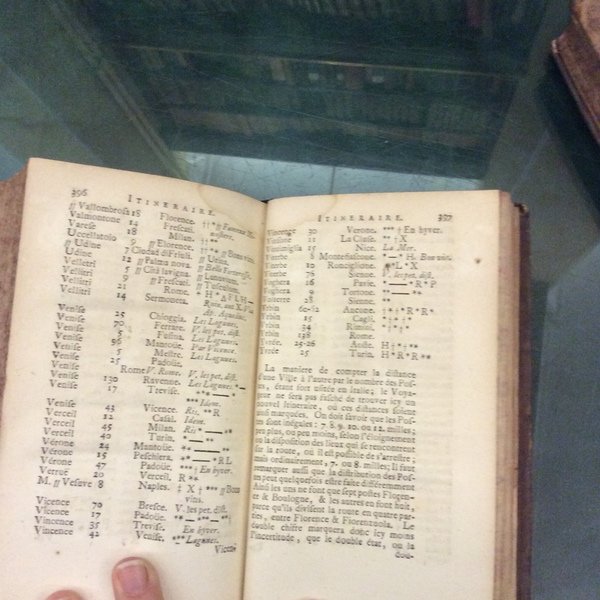 396
ITINERAIRE.
// Vallombrosa 18 Florence.
Valmontone 14 Frescati.
Varese 18 Milan.
Uccellatoio 9 // Florence.
// Udine 7 Ciudad di Friuli.
Udine 12 // Palma nova.
Velletri 5 // Citá lavigna.
Vellitri 9 // Frescati.
Vellitri 21 Rome.
Vellitri 14 Sermoneta.
Venise 25 Chioggia. Les Lagunes.
Venise 70 Ferrare. V. les pet. dist.
Venise 5 Fusina. Les Lagunes.
Venise 96 Mantoüe. Par Vicence.
Venise 5 Mestre. Les Lagunes.
Venise 25 Padoüe.
Venise Rome V. Rome. V. les pet. dist.
Venise 130 Ravenne. Les Lagunes
Venise 17 Trevise.
*** Idem.
Verceil 43 Vicence. Ris, **R
Verceil 12 Casal. Idem.
Verceil 45 Milan. Ris
Verceil 40 Turin.
Vérone 24 Mantoüe.
Vérone 15 Peschiera.
Vérone 47 Padoüe. En hyver.
Verruë 20 Verceil, R **
M. // Vesuve 8 Naples. † X † *** // Bons
vins.
Vicence 70 Bresce. V. les pet. dist.
Vicence 17 Padoüe.
Vincence 35 Trevise. En hyver.
Vincence 42 Venise. *** Lagunes.
Vicen-
ITINERAIRE. 397
Vincence 30 Verone. *** † En hyver.
11 La Cluse. ** † X
15 Nice. La Mer.
8 Montefiascone. H. Bon vin.
10 Ronciglione.
76 Sienne. V. les pet. dist.
Voghera 16 Pavie.
Voghera 9 Tortone.
Volterre 28 Sienne. **
Urbin Ancone.
Urbin 15 Cagli.
Urbin 34 Rimini.
Urbin 138 Rome.
25-26 Aoste.
25 Turin.
La maniere de compter la distance
d'une Ville à l'autre par le nombre des Pos-
tes, étant fort usitée en Italie; le Voya-
geur ne sera pas fasché de trouver icy un
nouvel Itineraire, où ces distances soient
ainsi marquées. On doit sçavoir que les Pos-
tes sont inégales: 7. 8. 9. 10. ou 12. milles,
peu plus, ou peu moins, selon l'éloignement
ou la disposition des lieux qui se rencontrent
sur la route, où il est possible de s'arrester:
mais ordinairement, 7. ou 8. milles; Il faut
remarquer aussi que la distribution des Pos-
tes peut quelquefois estre faite différemment.
Ainsi les uns ne font que sept postes Floren-
ce & Boulogne, & les autres en font huit,
parce qu'ils divisent la route en quatre par-
ties, entre Florence & Fiorenzuola. Le
double chifre marquera donc icy moins
l'incertitude, que le double état, ou la
dou-